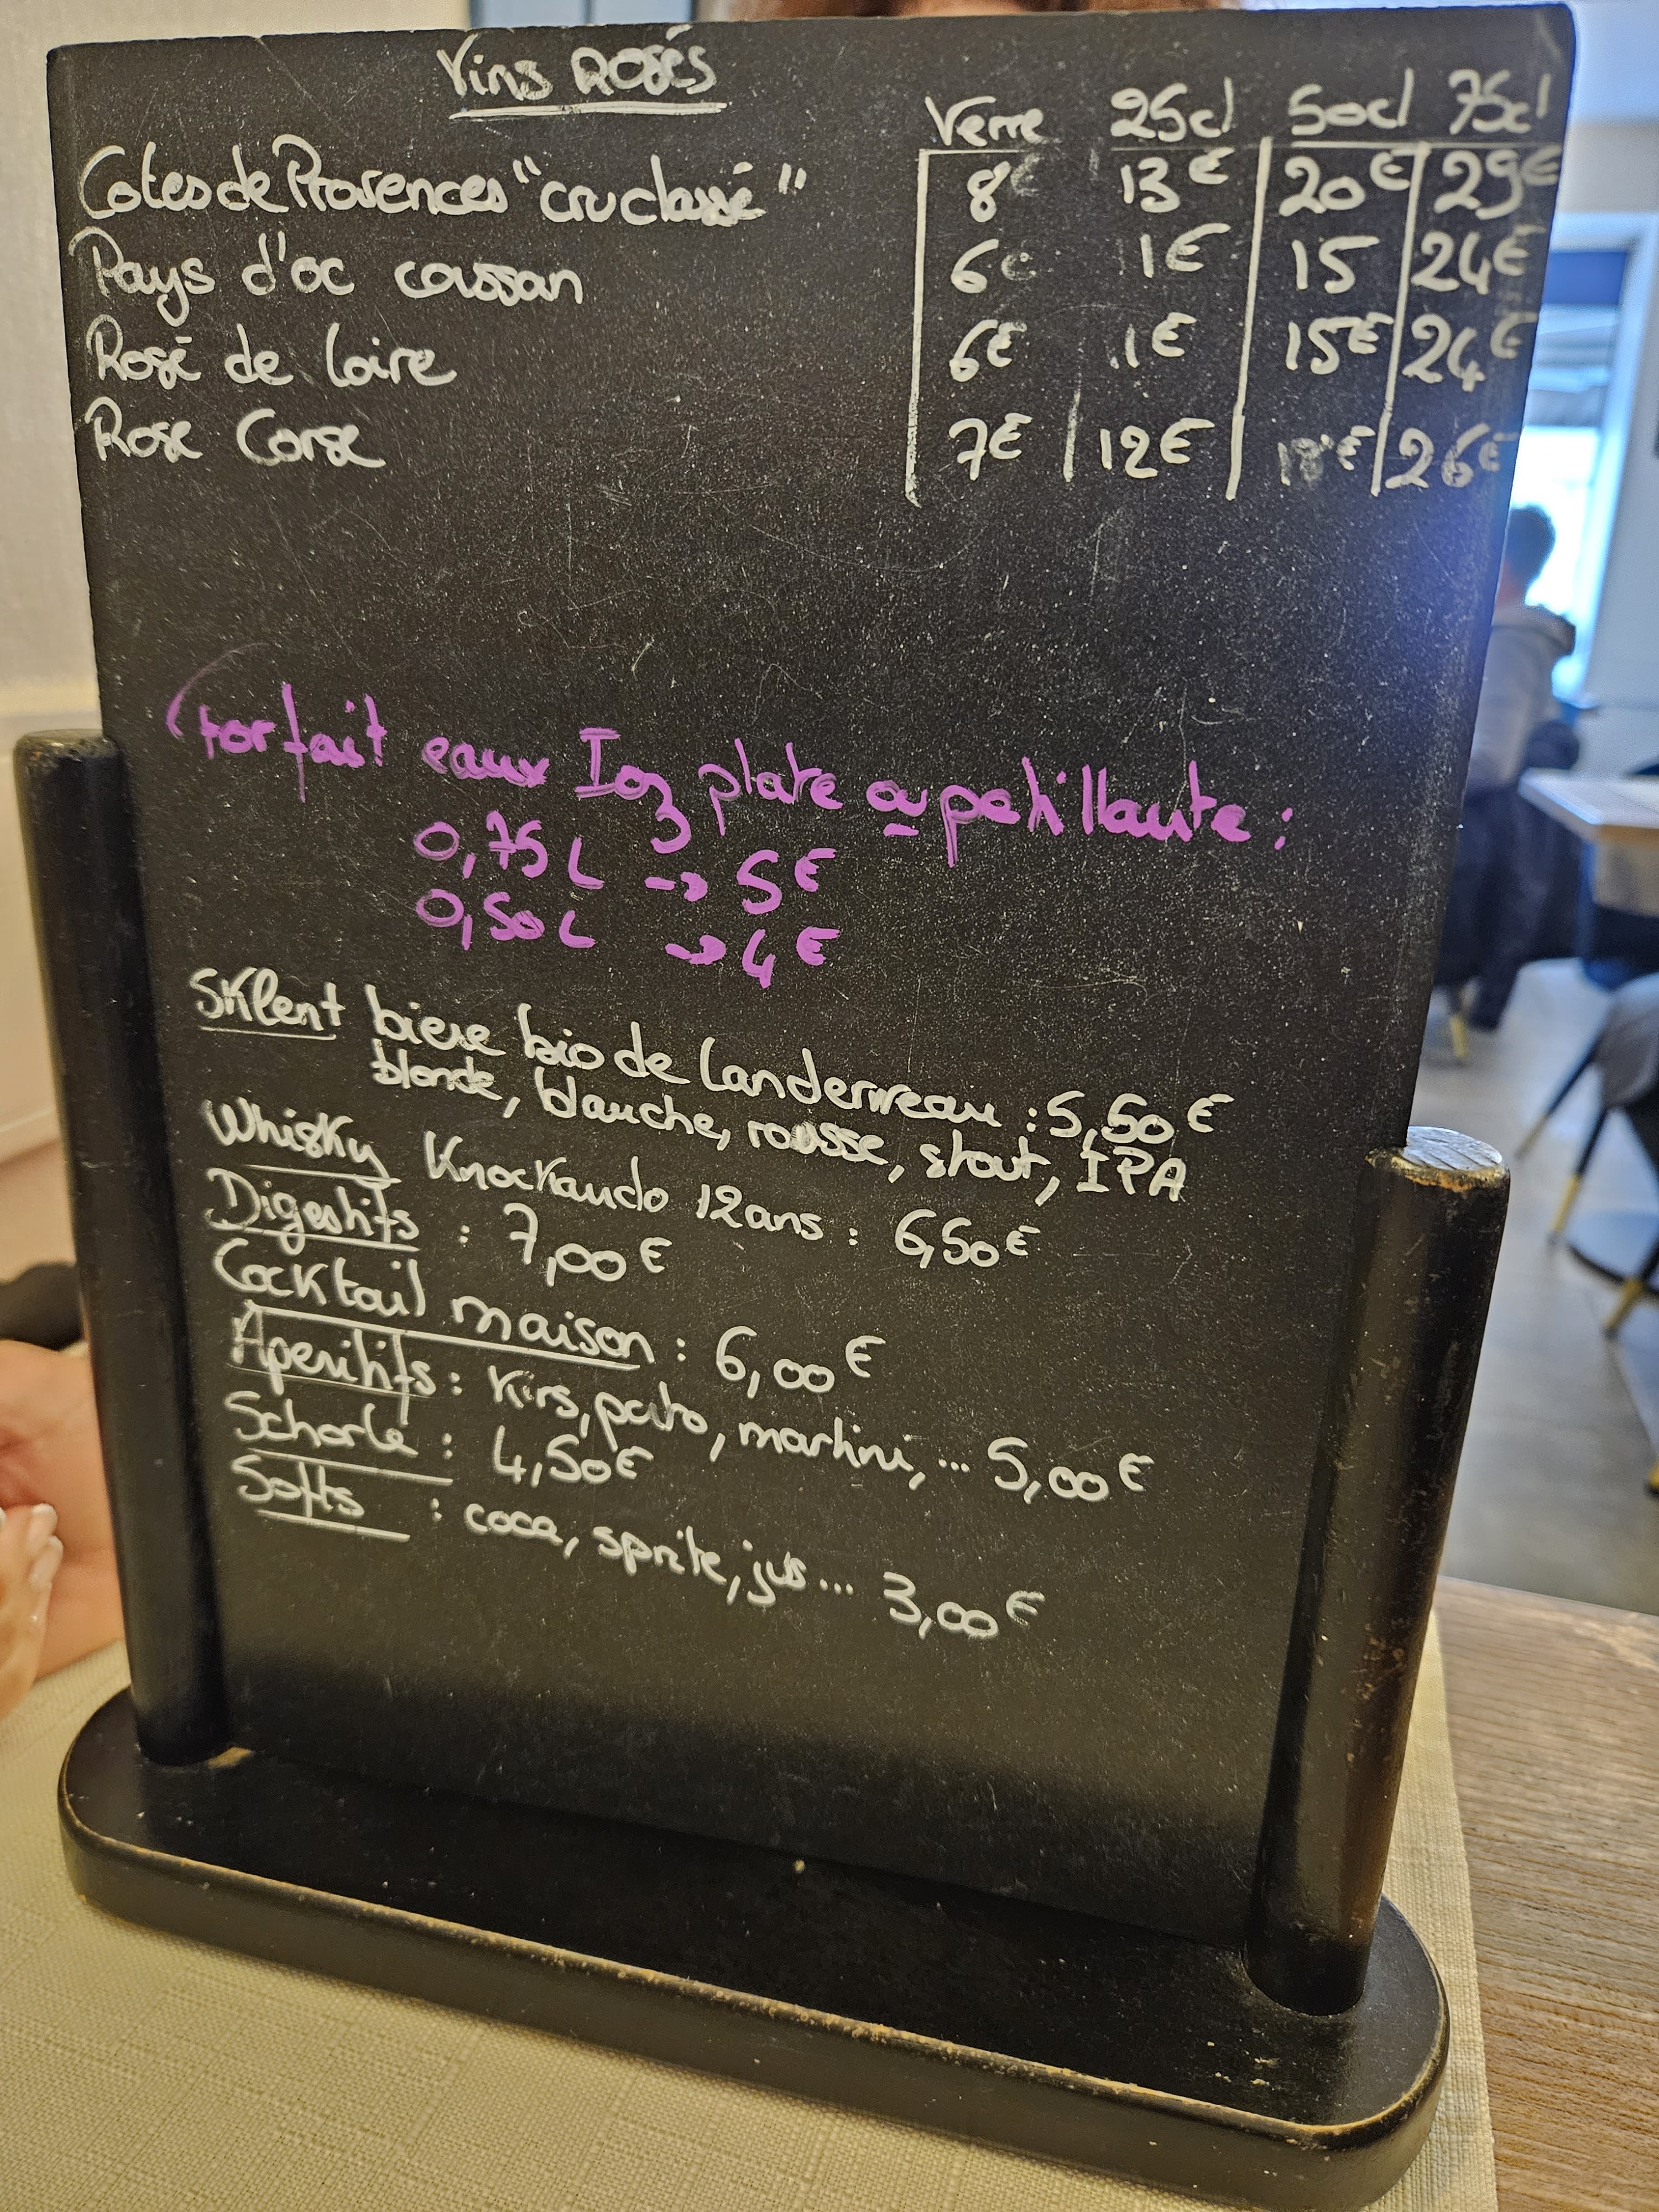 Vins Rosés
Verre 25cl 50cl 75cl
Cotes de Provences "cru classé" 8€ 13€ 20€ 29€
Pays d'oc coussan 6€ 1€ 15 24€
Rosé de Loire 6€ 1€ 15€ 24€
Rose Corse 7€ 12€ 26€
Forfait eaux plate ou petillante :
0,75 L → 5€
0,50 L → 4€
biere bio de Landerneau : 5,50€
blonde, blanche, rousse, stout, IPA
Whisky Knockando 12ans : 6,50€
Digestifs : 7,00€
Cocktail maison : 6,00€
Aperitifs : Kirs, porto, martini,... 5,00€
Schorle : 4,50€
Softs : coca, sprite, jus... 3,00€